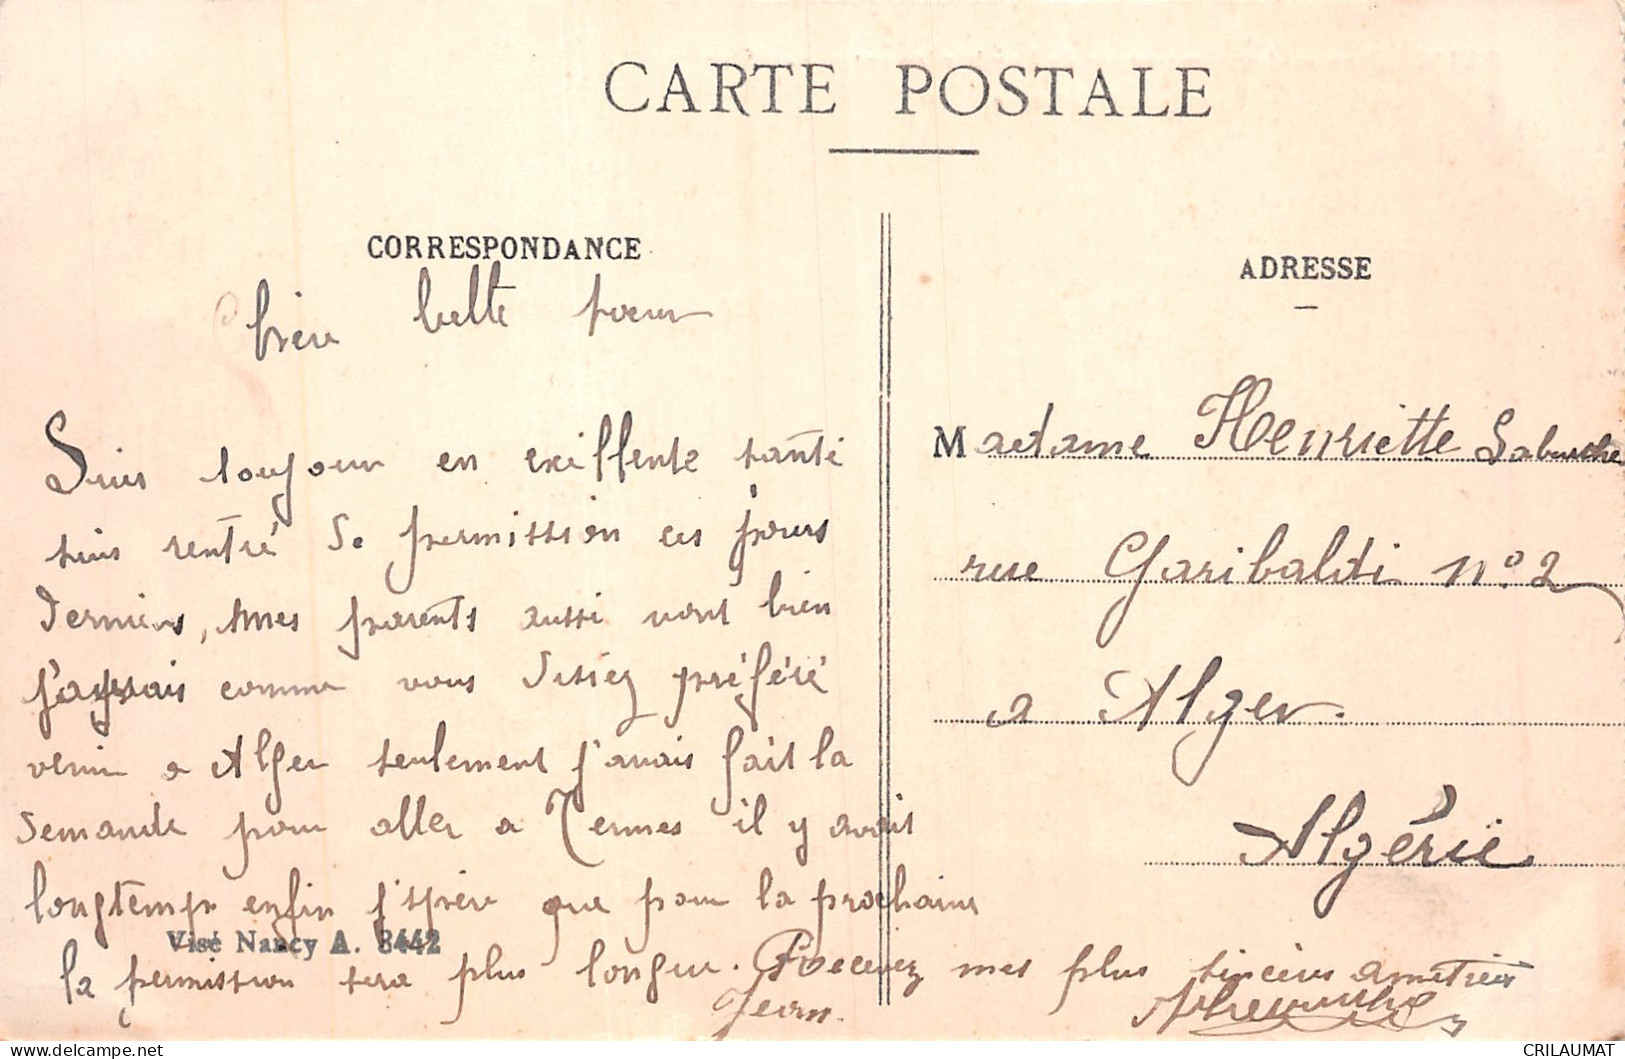 CARTE POSTALE
CORRESPONDANCE
ADRESSE
belle sœur
Suis toujour en exellente santé
suis rentré de permission ces jours
derniers, mes parents aussi vont bien
j'aurais comme vous disiez préféré
venir a Alger seulement j'avais fait la
demande pour aller a Rennes il y avait
longtemps enfin j'espère que pour la prochaine
la permission sera plus longue. Recevez mes plus sincères amitiés
Jean.
Visé Nancy A. 3442
Madame Henriette
rue Garibaldi n°2
a Alger.
Algérie
CRILAUMAT